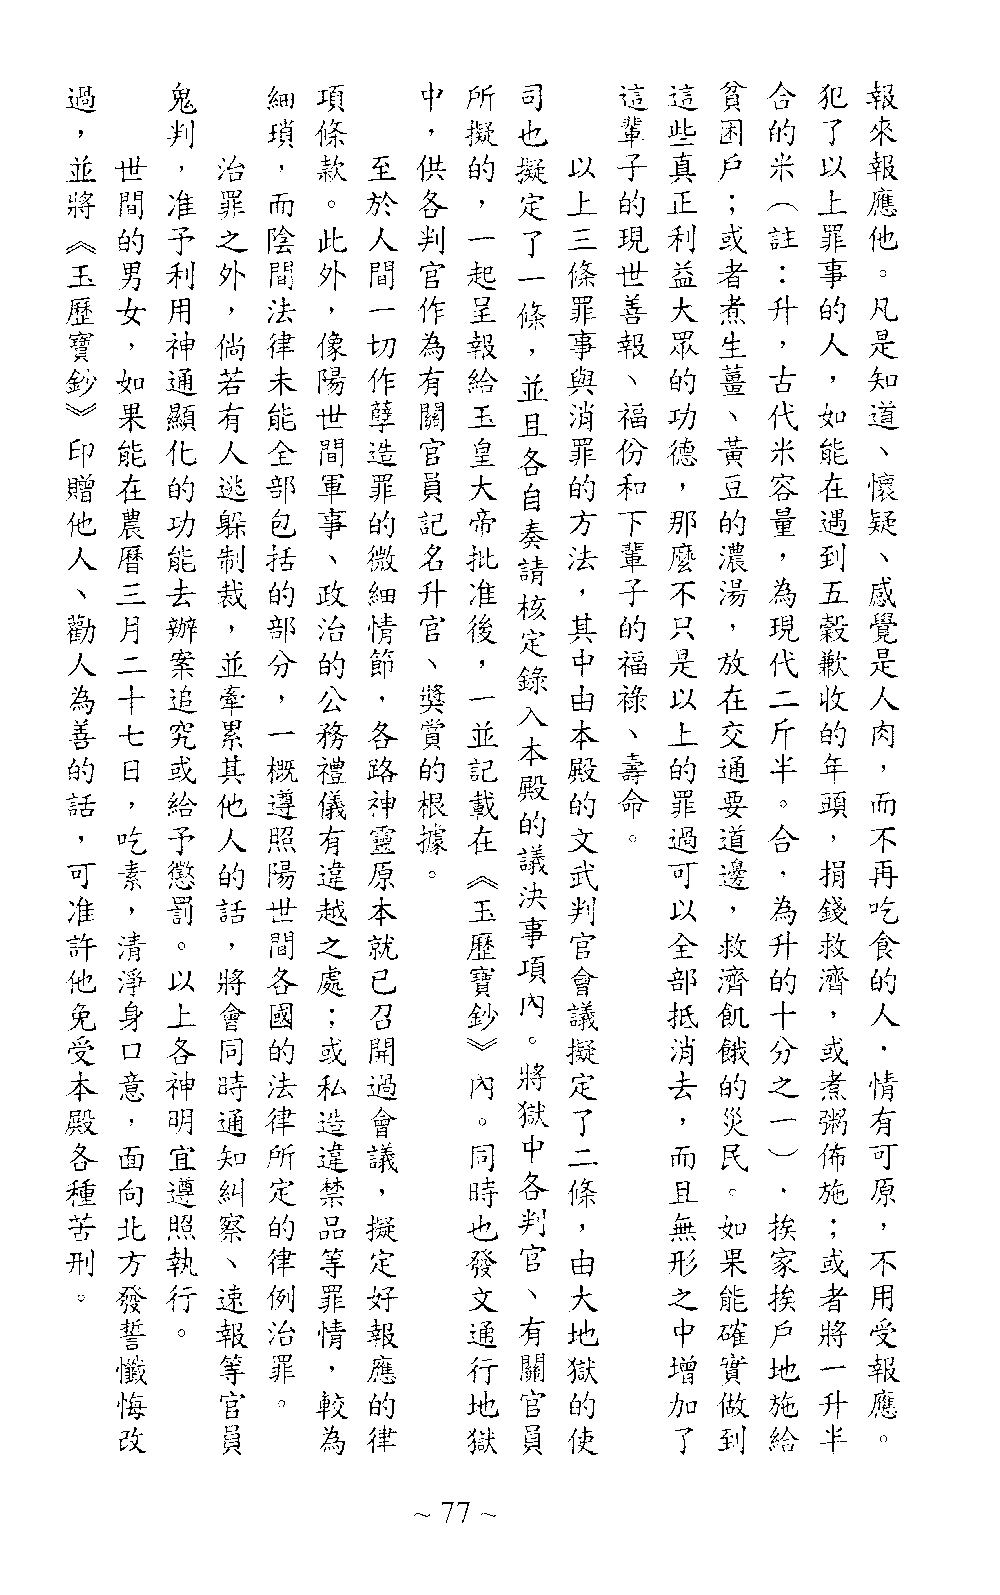 報來報應他。凡是知道、懷疑、感覺是人肉，而不再吃食的人，情有可原，不用受報應。
犯了以上罪事的人，如能在遇到五穀歉收的年頭，捐錢救濟，或煮粥佈施；或者將一升半
合的米（註：升，古代米容量，為現代二斤半。合，為升的十分之一），挨家挨戶地施給
貧困戶；或者煮生薑、黃豆的濃湯，放在交通要道邊，救濟飢餓的災民。如果能確實做到
這些真正利益大眾的功德，那麼不只是以上的罪過可以全部抵消去，而且無形之中增加了
這輩子的現世善報、福份和下輩子的福祿、壽命。
以上三條罪事與消罪的方法，其中由本殿的文武判官會議擬定了二條，由大地獄的使
司也擬定了一條，並且各自奏請核定錄入本殿的議決事項內。將獄中各判官、有關官員
所擬的，一起呈報給玉皇大帝批准後，一並記載在《玉歷寶鈔》內。同時也發文通行地獄
中，供各判官作為有關官員記名升官、獎賞的根據。
至於人間一切作孽造罪的微細情節，各路神靈原本就已召開過會議，擬定好報應的律
項條款。此外，像陽世間軍事、政治的公務禮儀有違越之處；或私造違禁品等罪情，較為
細瑣，而陰間法律未能全部包括的部分，一概遵照陽世間各國的法律所定的律例治罪。
治罪之外，倘若有人逃躲制裁，並牽累其他人的話，將會同時通知糾察、速報等官員
鬼判，准予利用神通顯化的功能去辦案追究或給予懲罰。以上各神明宜遵照執行。
世間的男女，如果能在農曆三月二十七日，吃素，清淨身口意，面向北方發誓懺悔改
過，並將《玉歷寶鈔》印贈他人、勸人為善的話，可准許他免受本殿各種苦刑。
~ 77 ~